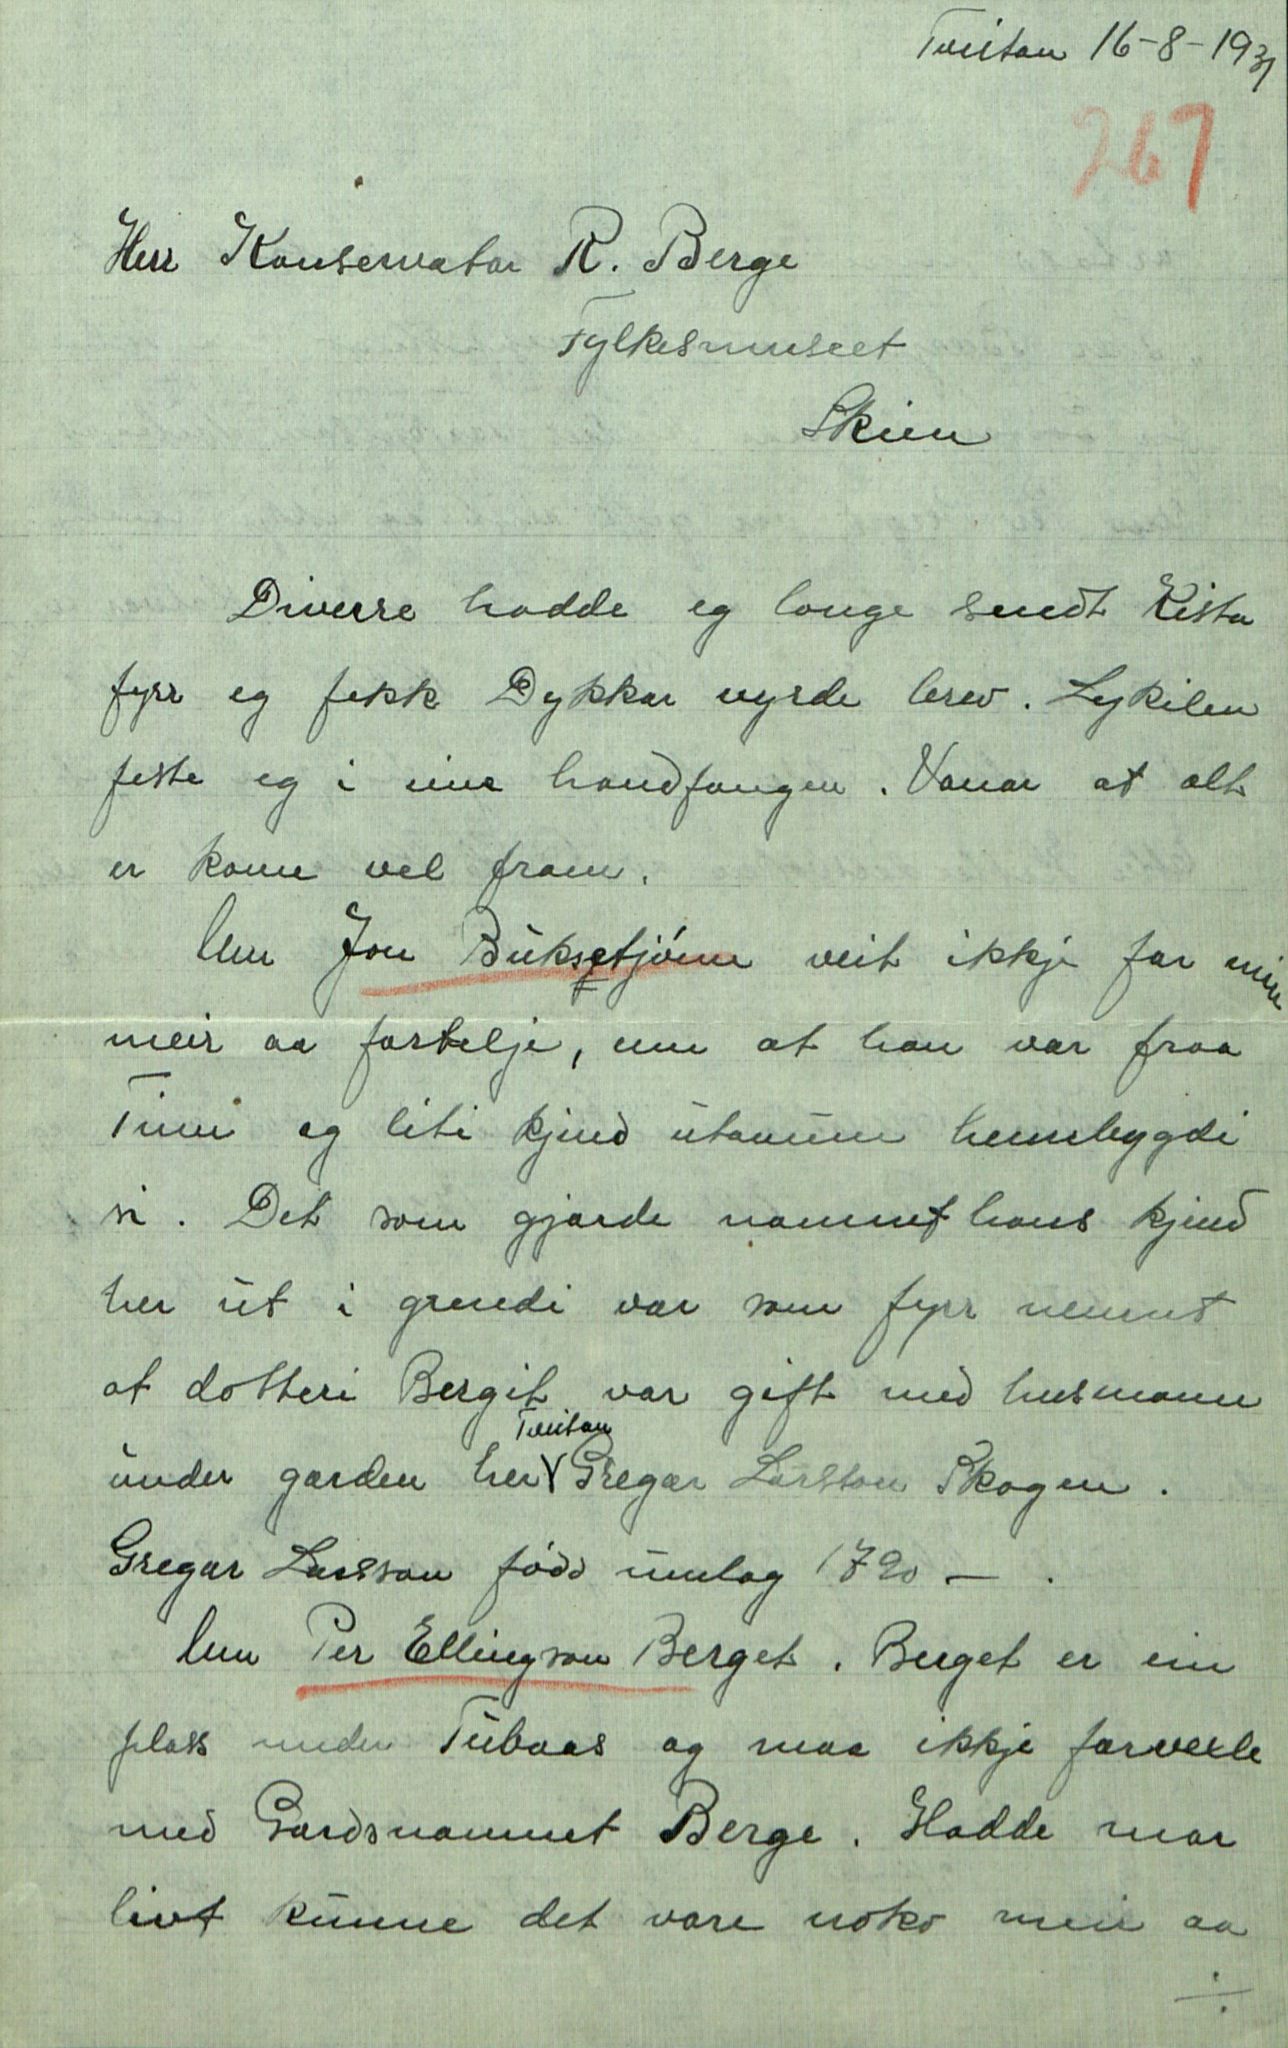 Tveitan 16-8-1931
267
Herr Konservator R. Berge
Fylkesmuseet
Skien
Diverre hadde eg longe sendt Kista
fyrr eg fekk Dykkar vyrde brev. Lykilen
feste eg i eine handfangen. Vonar at alt
er kome vel fram.
Um Jon Buksetjónn veit ikkje far min
meir aa fortelje, enn at han var fraa
Tinn og liti kjend utanum heimbygdi
si. Det som gjorde namnet hans kjend
her ut i grendi var som fyrr nemnt
at dotteri Bergit var gift med husmann
Tveitan
under garden her Gregar Larsson Skogen.
Gregar Larsson fódd umlag 1790 — .
Um Per Ellingson Berget. Berget er ein
plass under Tubaas og maa ikkje forvexle
med Gardsnamnet Berge. Hadde mor
livt kunne det vore noko meir aa
÷